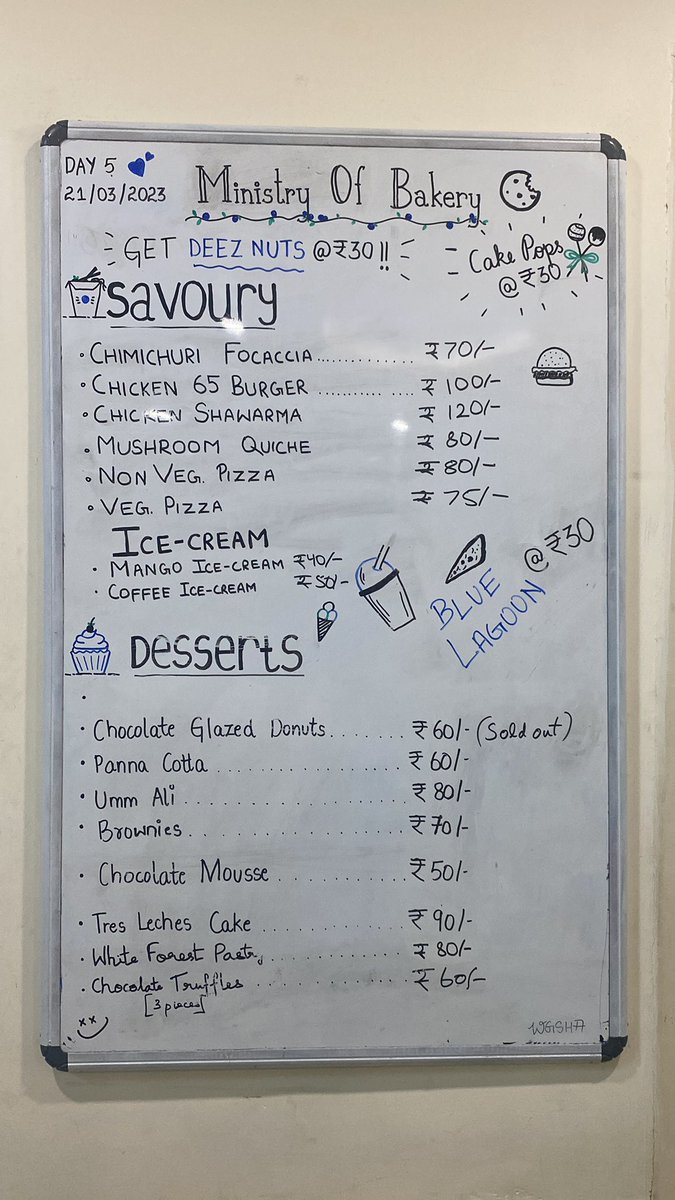 DAY 5
21/03/2023
Ministry Of Bakery
GET DEEZ NUTS @₹30!!
Cake Pops
@₹30
Savoury
• CHIMICHURI FOCACCIA.............. ₹70/-
• CHICKEN 65 BURGER .............. ₹ 100/-
• CHICKEN SHAWARMA ₹ 120/-
• MUSHROOM QUICHE ₹ 80/-
• NON VEG. PIZZA ₹80/-
• VEG. PIZZA ₹ 75/-
ICE-CREAM
• MANGO ICE-CREAM ₹40/-
• COFFEE ICE-CREAM ₹50/-
BLUE
LAGOON @₹30
Desserts
•
• Chocolate Glazed Donuts....... ₹60/- (Sold out)
• Panna Cotta ................. ₹60/-
• Umm Ali .................... ₹80/-
• Brownies .................... ₹70/-
• Chocolate Mousse ........... ₹50/-
• Tres Leches Cake ............ ₹90/-
• White Forest Pastry ........... ₹80/-
• Chocolate Truffles ............ ₹60/-
[3 pieces]